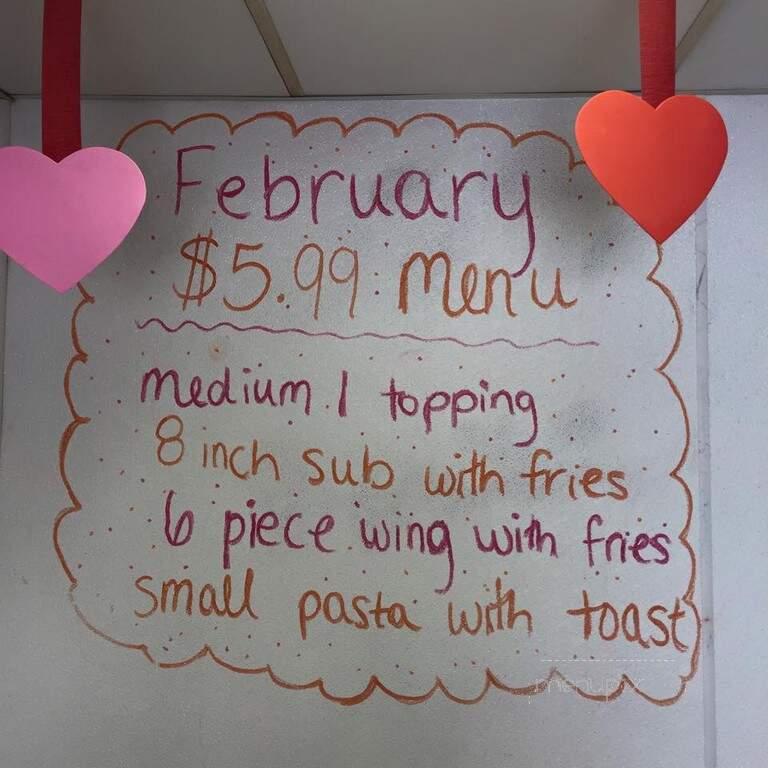 February
$5.99 menu
medium 1 topping
8 inch sub with fries
6 piece wing with fries
small pasta with toast
menupix